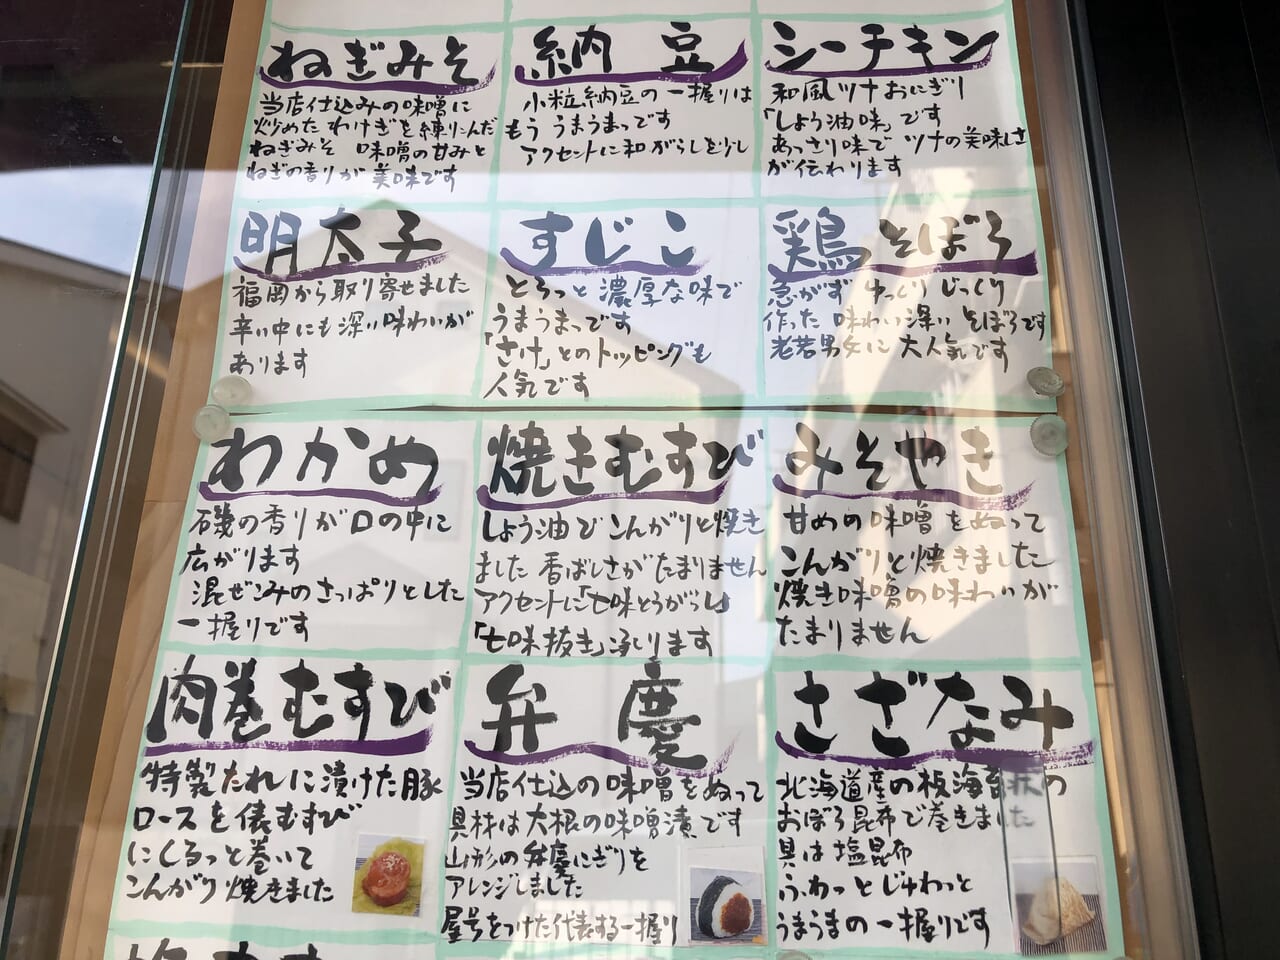 ねぎみそ
当店仕込みの味噌に
炒めたわけぎを練りこんだ
ねぎみそ 味噌の甘みと
ねぎの香りが美味です
納豆
小粒納豆の一握りは
もううまうまっです
アクセントに和がらしを少し
シーチキン
和風ツナおにぎり
「しょう油味」です
あっさり味でツナの美味しさ
が伝わります
明太子
福岡から取り寄せました
辛い中にも深い味わいが
あります
すじこ
とろっと濃厚な味で
うまうまっです
「さけ」とのトッピングも
人気です
鶏そぼろ
急がずゆっくりじっくり
作った味わい深いそぼろです
老若男女に大人気です
わかめ
磯の香りが口の中に
広がります
混ぜこみのさっぱりとした
一握りです
焼きむすび
しょう油でこんがりと焼き
ました香ばしさがたまりません
アクセントに「七味とうがらし」
「七味抜き」承ります
みそやき
甘めの味噌をぬって
こんがりと焼きました
焼き味噌の味わいが
たまりません
肉巻むすび
特製たれに漬けた豚
ロースを俵むすび
にくるっと巻いて
こんがり焼きました
弁慶
当店仕込の味噌をぬって
具材は大根の味噌漬です
山形の弁慶にぎりを
アレンジしました
屋号をつけた代表する一握り
さざなみ
北海道産の
おぼろ昆布で巻きました
具は塩昆布
ふわっとじゅわっと
うまうまの一握りです